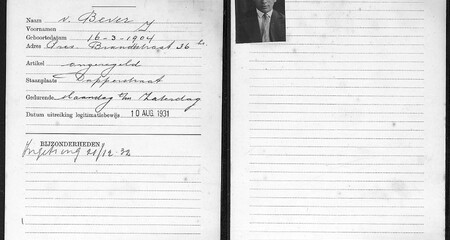 Naam v. Bever
Voornamen J
Geboortedatum 16-3-1904
Adres Pres. Brandstraat 36 hs
Artikel ongeregeld
Staanplaats Dapperstraat
Gedurende Maandag t/m Zaterdag
Datum uitreiking legitimatiebewijs 10 AUG. 1931
BIJZONDERHEDEN
21/12-32